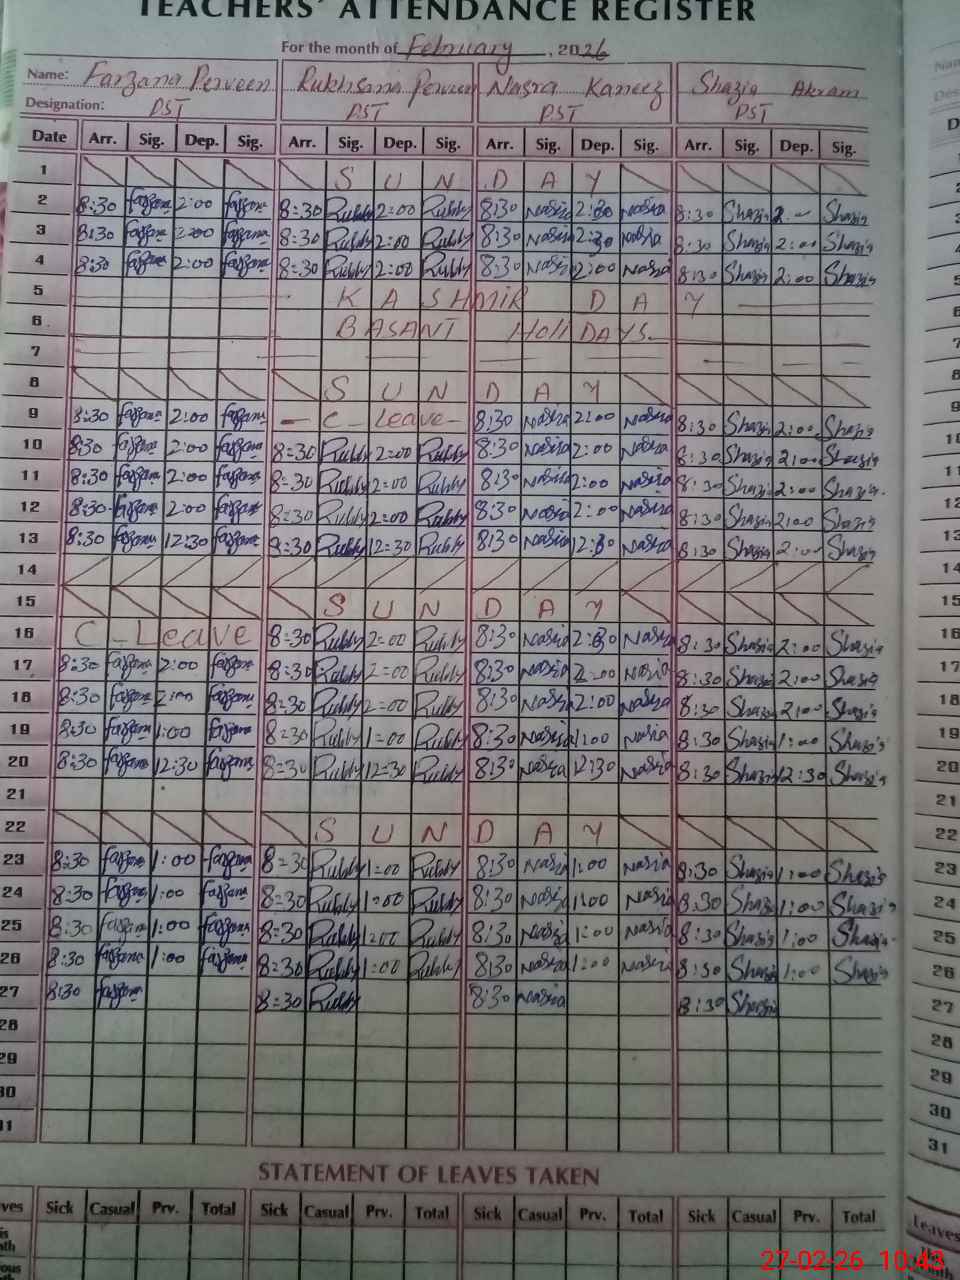 TEACHERS' ATTENDANCE REGISTER
For the month of February, 2026
Name: Farzana Perveen Rukhsana Perveen Nasra Kaneez Shazia Akram
Designation: PST PST PST PST
Date Arr. Sig. Dep. Sig. Arr. Sig. Dep. Sig. Arr. Sig. Dep. Sig. Arr. Sig. Dep. Sig.
1 S U N D A Y
2 8:30 farzana 2:00 farzana 8=30 Rubby 2=00 Rubby 8:30 Nasra Nasra 8:30 Shazia Shazia
3 8:30 farzana 2:00 farzana 8=30 Rubby 2=00 Rubby 8:30 Nasra Nasra 8:30 Shazia 2:00 Shazia
4 8:30 farzana 2:00 farzana 8=30 Rubby 2=00 Rubby 8:30 Nasra 2:00 Nasra 8:30 Shazia 2:00 Shazia
5 K A S H M I R D A Y
6 BASANT HOliDAYS
7
8 S U N D A Y
9 8:30 farzana 2:00 farzana - C - Leave - 8:30 Nasra 2:00 Nasra 8:30 Shazia 2:00 Shazia
10 8:30 farzana 2:00 farzana 8=30 Rubby 2=00 Rubby 8:30 Nasra 2:00 Nasra 8:30 Shazia 2:00 Shazia
11 8:30 farzana 2:00 farzana 8=30 Rubby 2=00 Rubby 8:30 Nasra 2:00 Nasra 8:30 Shazia 2:00 Shazia
12 8:30 farzana 2:00 farzana 8=30 Rubby 2=00 Rubby 8:30 Nasra 2:00 Nasra 8:30 Shazia 2:00 Shazia
13 8:30 farzana 12:30 farzana 8=30 Rubby 12=30 Rubby 8:30 Nasra 12:30 Nasra 8:30 Shazia 2:00 Shazia
14
15 S U N D A Y
16 C - Leave 8=30 Rubby 2=00 Rubby 8:30 Nasra Nasra 8:30 Shazia 2:00 Shazia
17 8:30 farzana 2:00 farzana 8=30 Rubby 2=00 Rubby 8:30 Nasra 2:00 Nasra 8:30 Shazia 2:00 Shazia
18 8:30 farzana 2:00 farzana 8=30 Rubby 2=00 Rubby 8:30 Nasra 2:00 Nasra 8:30 Shazia 2:00 Shazia
19 8:30 farzana 1:00 farzana 8=30 Rubby 1=00 Rubby 8:30 Nasra 1:00 Nasra 8:30 Shazia 1:00 Shazia
20 8:30 farzana 12:30 farzana 8=30 Rubby 12=30 Rubby 8:30 Nasra 12:30 Nasra 8:30 Shazia 12:30 Shazia
21
22 S U N D A Y
23 8:30 farzana 1:00 farzana 8=30 Rubby 1=00 Rubby 8:30 Nasra 1:00 Nasra 8:30 Shazia 1:00 Shazia
24 8:30 farzana 1:00 farzana 8=30 Rubby 1=00 Rubby 8:30 Nasra 1:00 Nasra 8:30 Shazia 1:00 Shazia
25 8:30 farzana 1:00 farzana 8=30 Rubby 1=00 Rubby 8:30 Nasra 1:00 Nasra 8:30 Shazia 1:00 Shazia
26 8:30 farzana 1:00 farzana 8=30 Rubby 1=00 Rubby 8:30 Nasra 1:00 Nasra 8:30 Shazia 1:00 Shazia
27 8:30 farzana 8=30 Rubby 8:30 Nasra 8:30 Shazia
28
29
30
31
STATEMENT OF LEAVES TAKEN
Sick Casual Prv. Total Sick Casual Prv. Total Sick Casual Prv. Total Sick Casual Prv. Total
Leaves
27-02-26 10:43